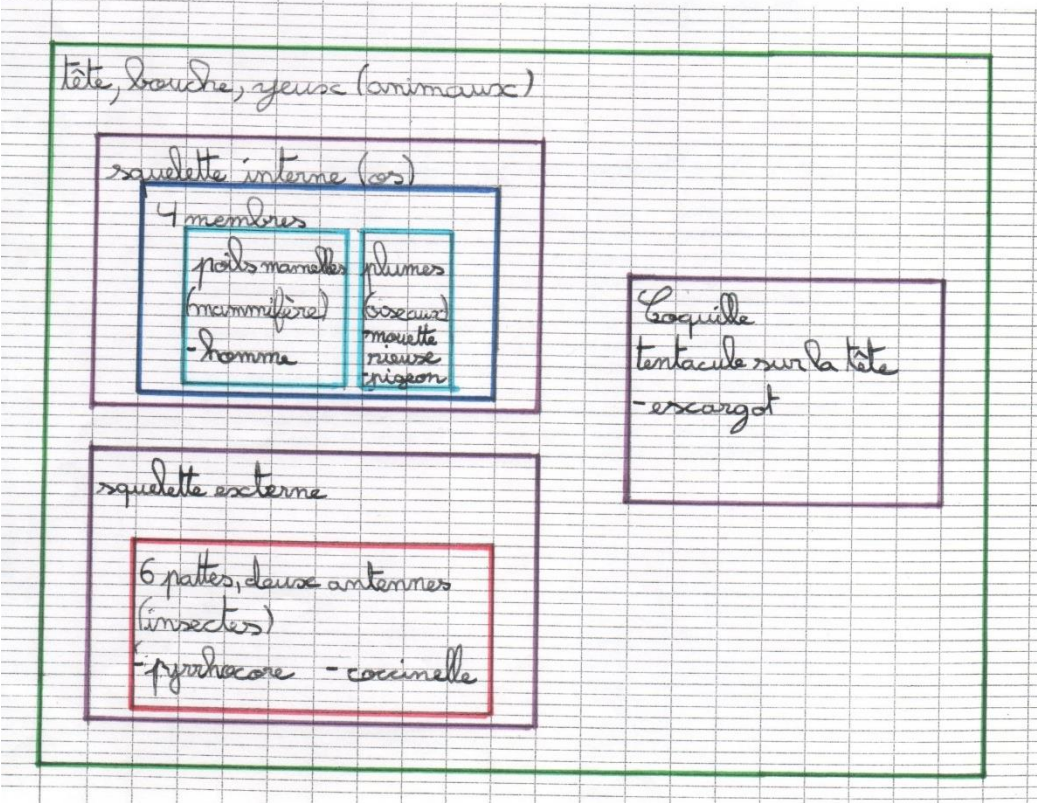 tête, bouche, yeux (animaux)
squelette interne (os)
4 membres
poils mamelles
(mammifère)
- homme
plumes
(oiseaux)
- mouette
rieuse
- pigeon
Coquille
tentacule sur la tête
- escargot
squelette externe
6 pattes, deux antennes
(insectes)
- pyrrhocore - coccinelle